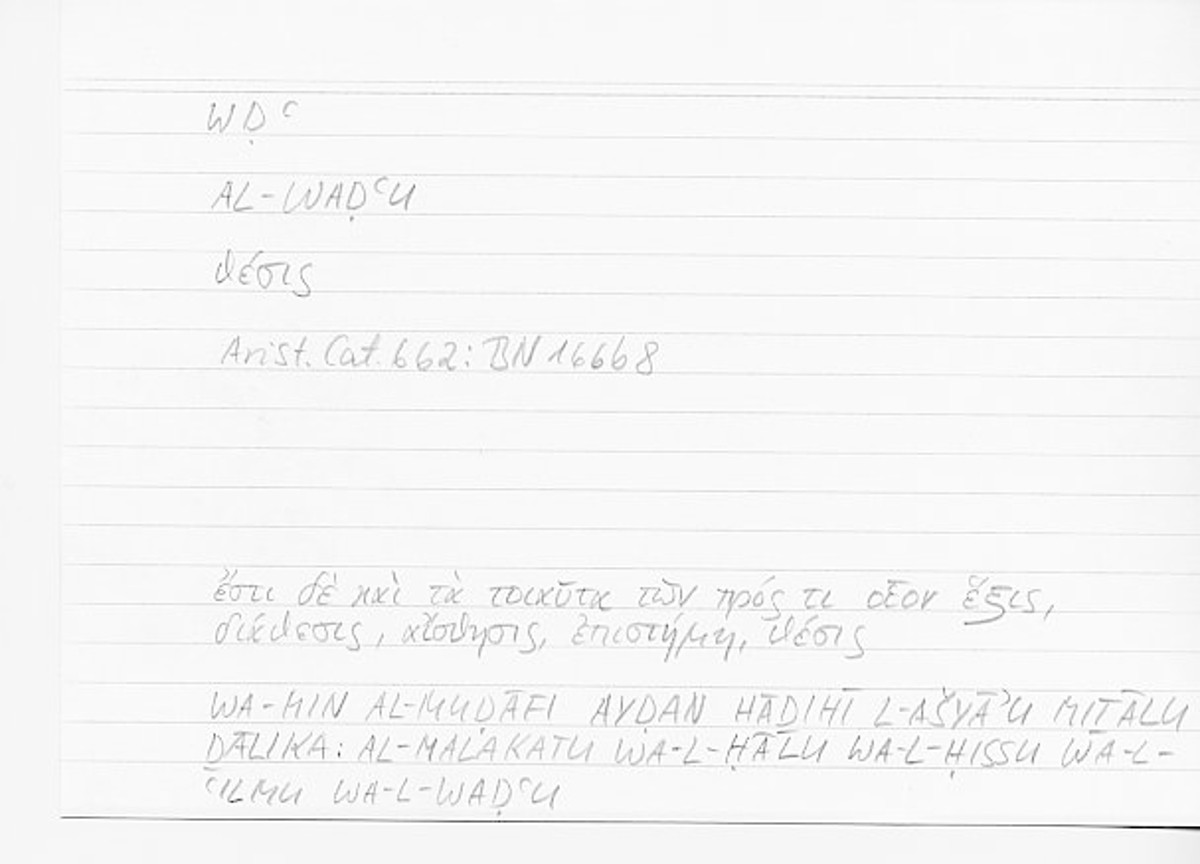 WḌʿ
AL-WAḌʿU
θέσις
Arist. Cat. 6b2: BN 166b8
ἔστι δὲ καὶ τὰ τοιαῦτα τῶν πρός τι οἷον ἕξις,
διάθεσις, αἴσθησις, ἐπιστήμη, θέσις
WA-MIN AL-MUḌĀFI AYḌAN HĀḎIHĪ L-AŠYĀʾU MIṮĀLU
ḎĀLIKA: AL-MALAKATU WA-L-ḤĀLU WA-L-ḤISSU WA-L-
ʿILMU WA-L-WAḌʿU